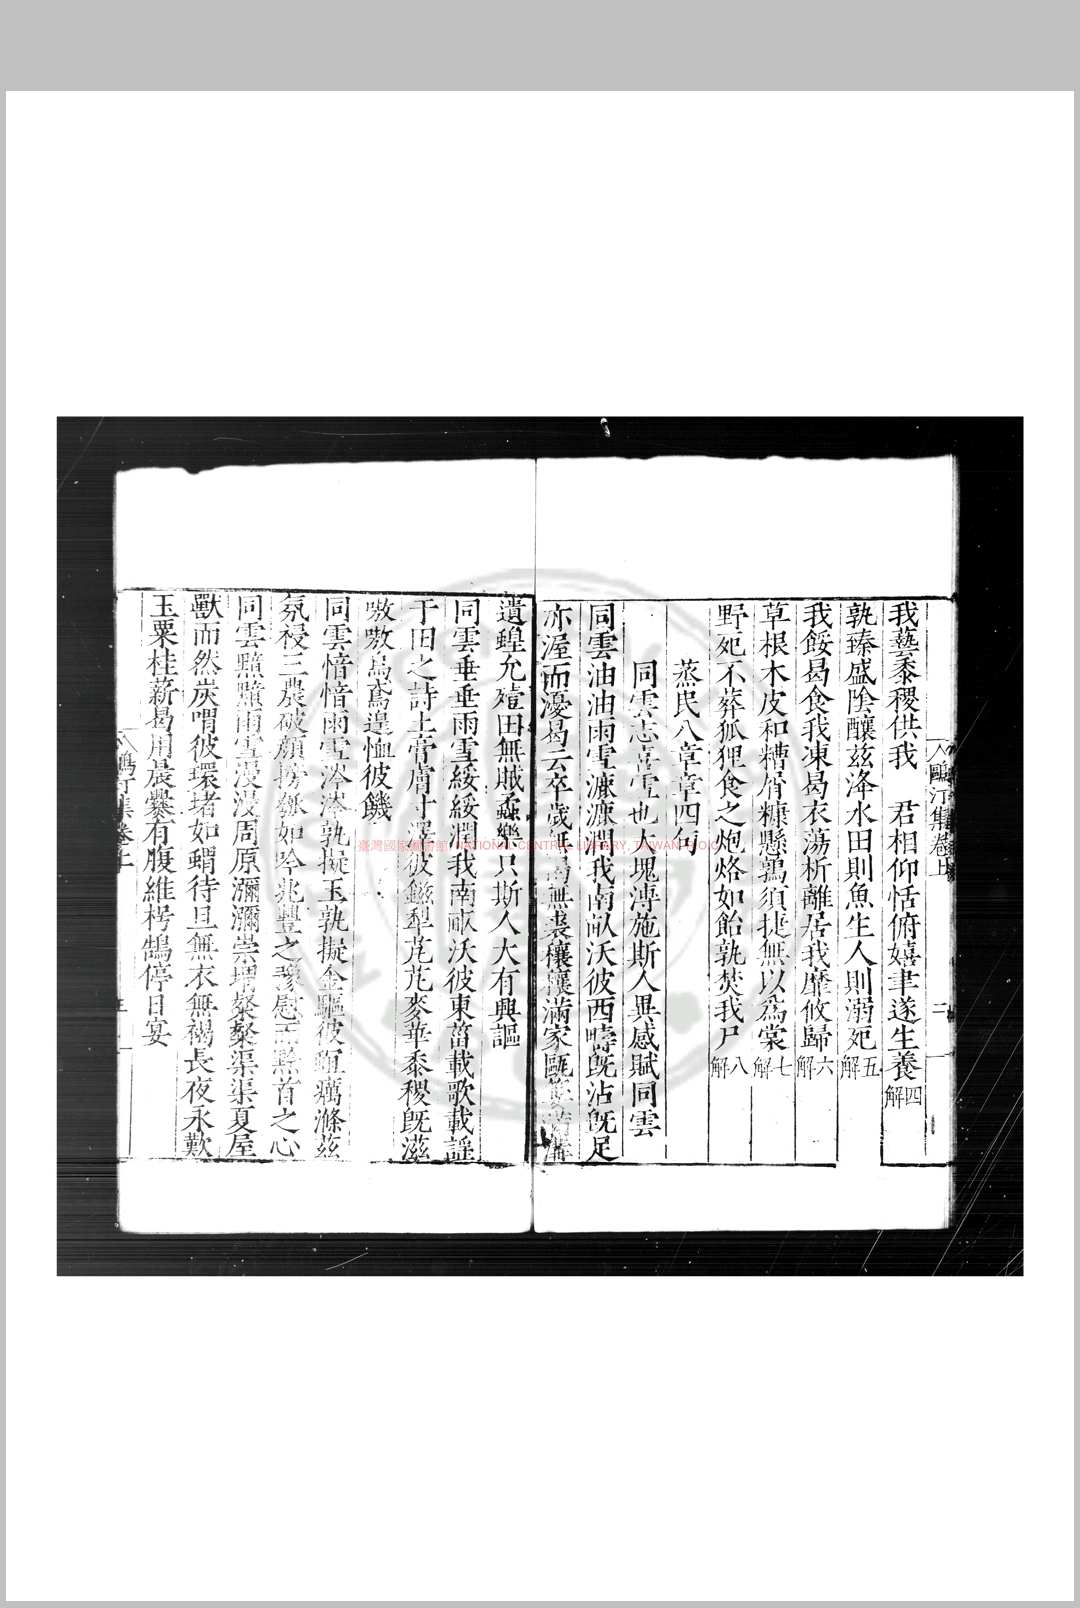 我藝黍稷供我 君相仰恬俯嬉聿遂生養四解
孰臻盛陰釀兹洚水田則魚生人則溺死五解
我餒曷食我凍曷衣蕩析離居我靡攸歸六解
草根木皮和糟屑糠懸鶉須捷無以爲裳七解
野死不葬狐狸食之炮烙如飴孰焚我尸八解
蒸民八章章四句
同雲志喜雪也大塊溥施斯人異感賦同雲
同雲油油雨雪瀌瀌潤我南畝沃彼西疇旣沾旣足
亦渥而濅曷云卒歲無褐無裘穰穰滿家甌窶滿篝
遺蝗允殪田無賊蟊樂只斯人大有興謳
同雲垂垂雨雪綏綏潤我南畝沃彼東菑載歌載謡
于田之詩土膏膚寸澤彼鎡犁芃芃麥華黍稷旣滋
嗷嗷烏鳶遑恤彼饑
同雲愔愔雨雪涔涔孰擬玉孰擬金驅彼疽癘滌兹
氛祲三農破顏挾纊如吟兆豐之豫慰 黔首之心
同雲黯黯雨雪漫漫周原瀰瀰崇墉粲粲渠渠夏屋
獸而然炭喟彼環堵如蝟待旦無衣無褐長夜永歎
玉粟桂薪曷用晨爨有腹維枵鵠停日宴
鷗汀集卷上
二
鷗汀集卷上
臺灣國家圖書館 NATIONAL CENTRAL LIBRARY, TAIWAN, R.O.C